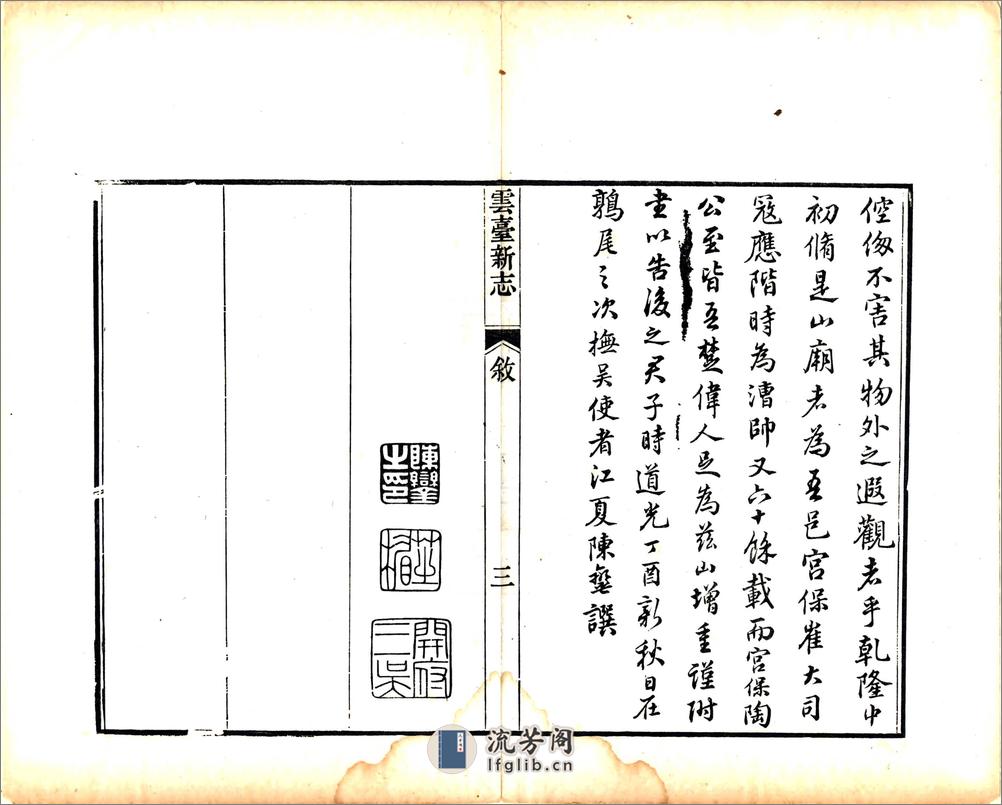 倥傯不害其物外之遐觀者乎乾隆中
初脩是山廟者為吾邑宮保崔大司
寇應階時為漕帥又六十餘載而宮保陶
公至皆吾楚偉人足為茲山增重謹附
書以告後之君子時道光丁酉新秋日在
鶉尾之次撫吳使者江夏陳鑾譔
雲臺新志
敘
三
陳鑾之印
開府三吳
流芳阁
lfglib.cn